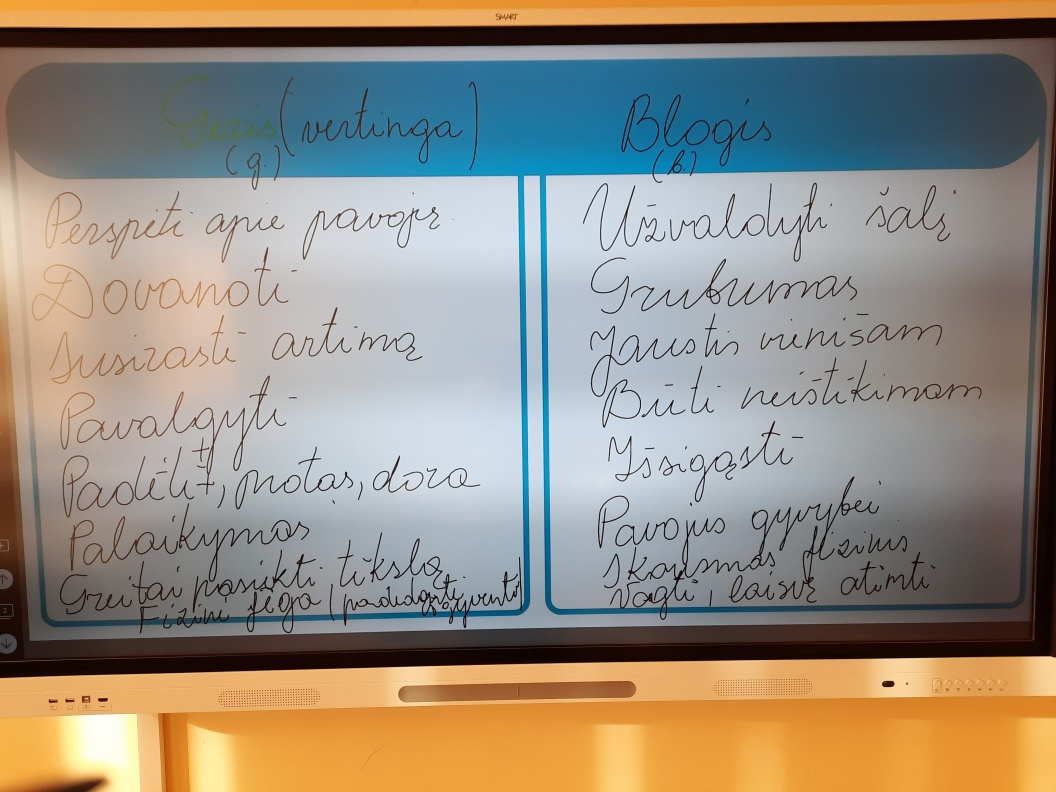 SMART
Gėris (vertinga)
(g.)
Blogis
(b.)
Perspėti apie pavojų
Dovanoti
Susirasti artimą
Pavalgyti
Padėti, protas, dora
Palaikymas
Greitai pasiekti tikslą
Fizinė jėga
Užvaldyti šalį
Grubumas
Jaustis vienišam
Būti neištikimam
Išsigąsti
Pavojus gyvybei
Skausmas fizinis
Vogti, laisvę atimti